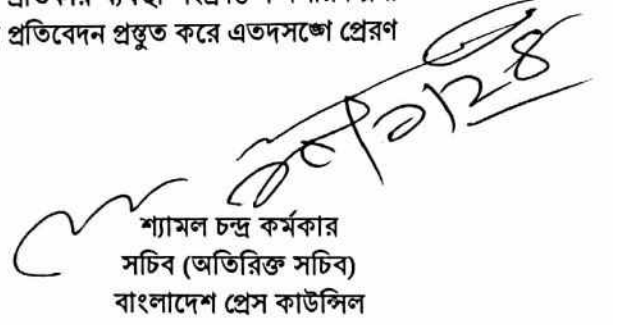 প্রতিবেদন প্রস্তুত করে এতদসঙ্গে প্রেরণ
শ্যামল চন্দ্র কর্মকার
সচিব (অতিরিক্ত সচিব)
বাংলাদেশ প্রেস কাউন্সিল